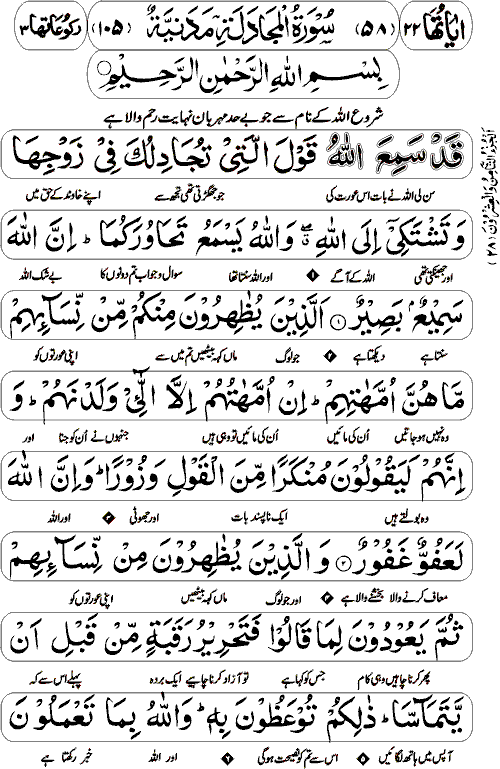 اٰیاتُها ۲۲ (۵۸) سُوْرَةُ الْمُجَادَلَةِ مَدَنِیَّةٌ (۱۰۵) رکوعاتها ۳
بِسْمِ اللّٰهِ الرَّحْمٰنِ الرَّحِیْمِ
شروع اللہ کے نام سے جو بے حد مہربان نہایت رحم والا ہے
قَدْ سَمِعَ اللّٰهُ قَوْلَ الَّتِیْ تُجَادِلُكَ فِیْ زَوْجِهَا
سن لی اللہ نے بات اس عورت کی جو جھگڑتی تھی تجھ سے اپنے خاوند کے حق میں
وَ تَشْتَكِیْۤ اِلَی اللّٰهِ ۖۗ وَاللّٰهُ یَسْمَعُ تَحَاوُرَكُمَا ؕ اِنَّ اللّٰهَ
اور جھینکتی تھی اللہ کے آگے ۱ اور اللہ سنتا تھا سوال و جواب تم دونوں کا بے شک اللہ
سَمِیْعٌۢ بَصِیْرٌ ۝۱ اَلَّذِیْنَ یُظٰهِرُوْنَ مِنْكُمْ مِّنْ نِّسَآىِٕهِمْ
سنتا ہے دیکھتا ہے ۲ جو لوگ ماں کہہ بیٹھیں تم میں سے اپنی عورتوں کو
مَّا هُنَّ اُمَّهٰتِهِمْ ؕ اِنْ اُمَّهٰتُهُمْ اِلَّا الّٰٓـِٔیْ وَلَدْنَهُمْ ؕ وَ
وہ نہیں ہو جاتیں اُن کی مائیں اُن کی مائیں تو وہی ہیں جنہوں نے اُن کو جنا اور
اِنَّهُمْ لَیَقُوْلُوْنَ مُنْكَرًا مِّنَ الْقَوْلِ وَ زُوْرًا ؕ وَاِنَّ اللّٰهَ
وہ بولتے ہیں ایک ناپسند بات اور جھوٹی ۳ اور اللہ
لَعَفُوٌّ غَفُوْرٌ ۝۲ وَ الَّذِیْنَ یُظٰهِرُوْنَ مِنْ نِّسَآىِٕهِمْ
معاف کرنے والا بخشنے والا ہے ۴ اور جو لوگ ماں کہہ بیٹھیں اپنی عورتوں کو
ثُمَّ یَعُوْدُوْنَ لِمَا قَالُوْا فَتَحْرِیْرُ رَقَبَةٍ مِّنْ قَبْلِ اَنْ
پھر کرنا چاہیں وہی کام جس کو کہا ہے تو آزاد کرنا چاہیے ایک بردہ پہلے اس سے کہ
یَّتَمَآسَّا ؕ ذٰلِكُمْ تُوْعَظُوْنَ بِهٖ ؕ وَاللّٰهُ بِمَا تَعْمَلُوْنَ
آپس میں ہاتھ لگائیں ۵ اس سے تم کو نصیحت ہوگی ۶ اور اللہ خبر رکھتا ہے
الجزء الثامن والعشرون (۲۸)